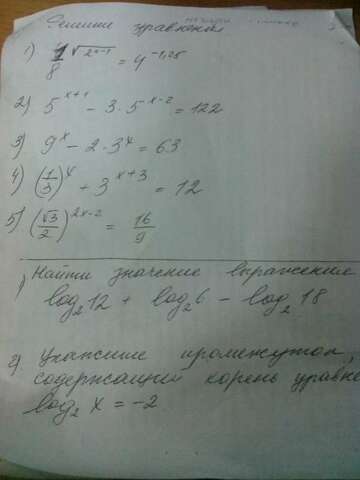 Решите уравнения
1) 1/8 √(2x-1) = 4^(-1,25)
2) 5^(x+1) - 3·5^(x-2) = 122
3) 9^x - 2·3^x = 63
4) (1/3)^x + 3^(x+3) = 12
5) (√3/2)^(2x-2) = 16/9
1) Найти значение выражения
log₂12 + log₂6 - log₂18
2) Укажите промежуток,
содержащий корень уравне
log₂ x = -2